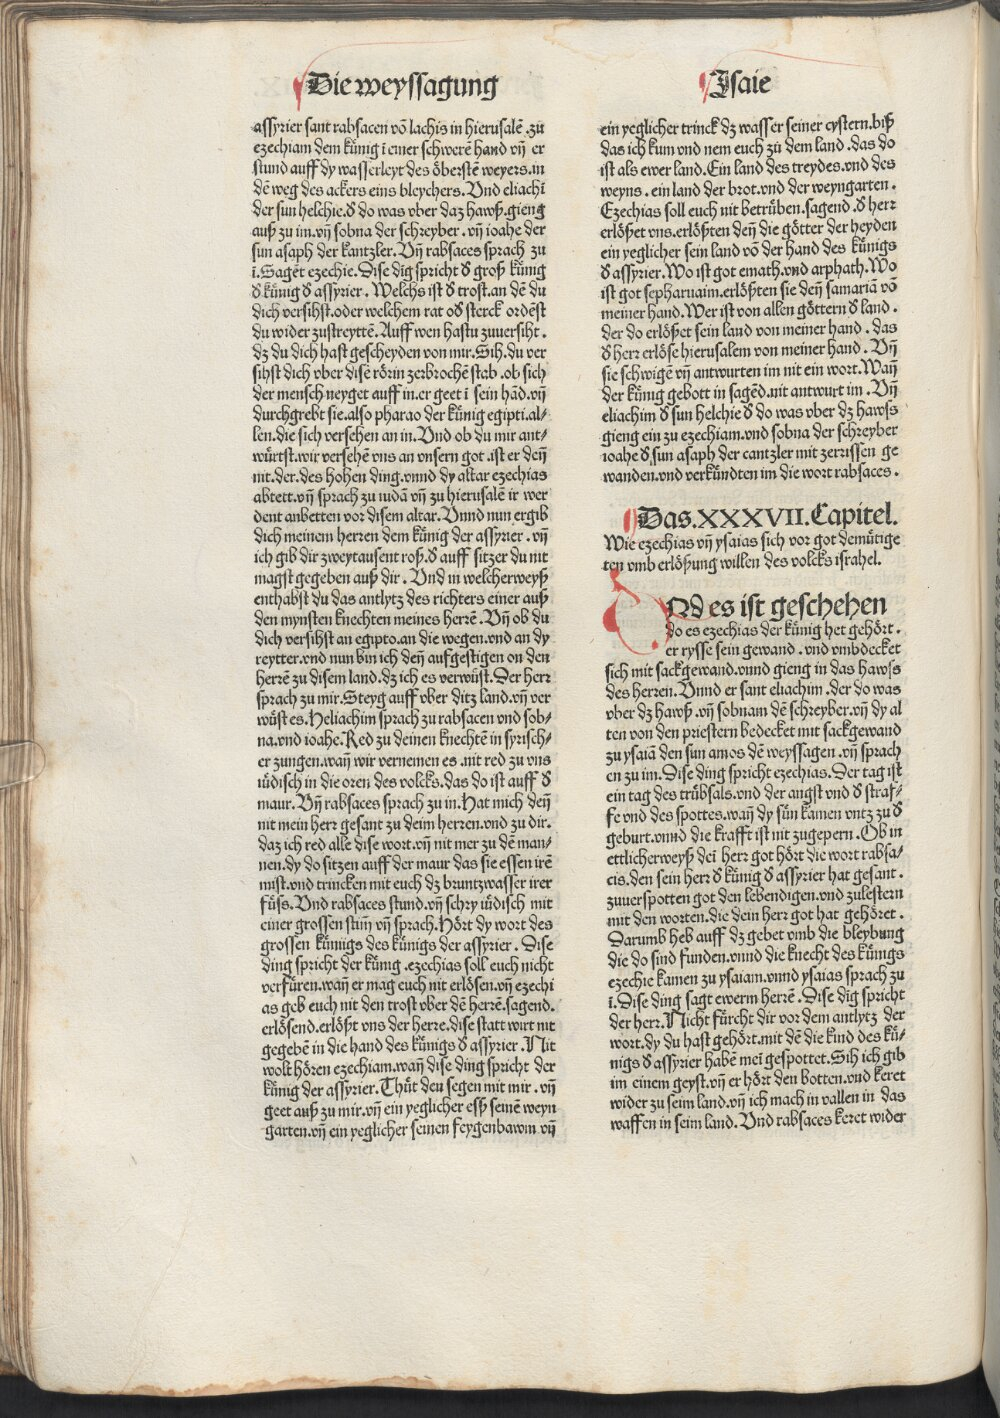 Die weyssagung
assyrier sant rabsacen võ lachis in hierusalẽ .zu
ezechiam dem kuͤnig ĩ einer schwerẽ hand vñ er
stund auff dy wasserleyt des oͤberstẽ weyers.in
dẽ weg des ackers eins bleychers.Vnd eliachĩ
der sun helchie.d̕ do was vber daz hawß.gieng
auß zu im.vñ sobna der schreyber .vñ ioahe der
sun asaph der kantzler.Vñ rabsaces sprach zu
ĩ.Sagẽt ezechie.Dise dĩg spricht d̕ groß kuͤnig
d̕ kuͤnig d̕ assyrier . Welchs ist d̕ trost.an dẽ du
dich versihst.oder welchem rat od̕ sterck ordẽst
du wider zustreyttẽ.Auff wen hastu zuuersiht .
dz du dich hast gescheyden von mir.Sih.du ver
sihst dich vber disẽ roͤrin zerbrochẽ stab .ob sich
der mensch neyget auff in.er geet ĩ sein hãd.vñ
durchgrebt sie.also pharao der kuͤnig egipti.al⸗
len.die sich versehen an in.Vnd ob du mir ant⸗
wuͤrtst.wir versehẽ vns an vnsern got .ist er deñ
nit.der.des hohen ding.vnnd dy altar ezechias
abtett.vñ sprach zu iudã vñ zu hierusalẽ ir wer
dent anbetten vor disem altar.Vnnd nun ergib
dich meinem herren dem kuͤnig der assyrier .vñ
ich gib dir zweytausent roß.d̕ auff sitzer du nit
magst gegeben auß dir . Vnd in welcherweyß
enthabst du das antlytz des richters einer auß
den mynsten knechten meines herrẽ. Vñ ob du
dich versihst an egypto.an die wegen.vnd an dy
reytter.vnd nun bin ich deñ aufgestigen on den
herrẽ zu disem land.dz ich es verwuͤst.Der herr
sprach zu mir.Steyg auff vber ditz land.vñ ver
wuͤst es.Heliachim sprach zu rabsacen vnd sob⸗
na.vnd ioahe.Red zu deinen knechtẽ in syrisch⸗
er zungen.wañ wir vernemen es .nit red zu vns
iuͤdisch in die oren des volcks.das do ist auff d̕
maur.Vñ rabsaces sprach zu in.Hat mich deñ
nit mein herr gesant zu deim herren.vnd zu dir.
daz ich red alle dise wort.vñ nit mer zu dẽ man⸗
nen.dy do sitzen auff der maur das sie essen irẽ
mist.vnd trincken mit euch dz bruntzwasser irer
fuͤss. Vnd rabsaces stund.vñ schry iuͤdisch mit
einer grossen stiñ vñ sprach.Hoͤrt dy wort des
grossen kuͤniigs des kuͤnigs der assyrier . Dise
ding spricht der kuͤnig .ezechias soll euch nicht
verfuͤren.wañ er mag euch nit erloͤsen.vñ ezechi
as geb euch nit den trost vber dẽ herrẽ.sagend.
erloͤsend.erloͤßt vns der herre.dise statt wirt nit
gegebẽ in die hand des kuͤnigs d̕ assyrier .Nit
woͤlt hoͤren ezechiam.wañ dise ding spricht der
kuͤnig der assyrier.Thuͤt den segen mit mir .vñ
geet auß zu mir.vñ ein yeglicher eß seinẽ weyn
garten.vñ ein yeglicher seinen feygenbawm vñ
Jsaie
ein yeglicher trinck dz wasser seiner cystern.biß
das ich kum vnd nem euch zu dem land .das do
ist als ewer land.Ein land des treydes.vnd des
weyns . ein land der brot.vnd der weyngarten .
Ezechias soll euch nit betruͤben.sagend.d̕ herr
erloͤßet vns.erloͤßten deñ die goͤtter der heyden
ein yeglicher sein land võ der hand des kuͤnigs
d̕ assyrier.Wo ist got emath.vnd arphath.Wo
ist got sepharuaim.erloͤßten sie deñ samariã võ
meiner hand.Wer ist von allen goͤttern d̕ land .
der do erloͤßet sein land von meiner hand . das
d̕ herr erloͤse hierusalem von meiner hand . Vñ
sie schwigẽ vñ antwurten im nit ein wort.Wañ
der kuͤnig gebott in sagẽd.nit antwurt im . Vñ
eliachim d̕ sun helchie d̕ do was vber dz hawss
gieng ein zu ezechiam.vnd sobna der schreyber
ioahe d̕ sun asaph der cantzler mit zerrissen ge
wanden.vnd verkuͤndten im die wort rabsaces .
Das.XXXVII.Capitel.
Wie ezechias vñ ysaias sich vor got demuͤtige
ten vmb erloͤßung willen des volcks israhel.
Vnd es ist geschehen
do es ezechias der kuͤnig het gehoͤrt .
er rysse sein gewand . vnd vmbdecket
sich mit sackgewand.vnnd gieng in das hawss
des herren. Vnnd er sant eliachim .der do was
vber dz hawß .vñ sobnam dẽ schreyber.vñ dy al
ten von den priestern bedecket mit sackgewand
zu ysaiã den sun amos dẽ weyssagen .vñ sprach
en zu im.Dise ding spricht ezechias.Der tag ist
ein tag des truͤbsals.vnd der angst vnd d̕ straf⸗
fe vnd des spottes.wañ dy suͤn kamen vntz zu d̕
geburt.vnnd die krafft ist nit zugepern . Ob in
ettlicherweyß deĩ herr got hoͤrt die wort rabsa⸗
cis.den sein herr d̕ kuͤnig d̕ assyrier hat gesant .
zuuerspotten got den lebendigen.vnd zulestern
mit den worten.die dein herr got hat gehoͤret .
Darumb heb auff dz gebet vmb die bleybung
die do sind funden.vnnd die knecht des kuͤnigs
ezechie kamen zu ysaiam.vnnd ysaias sprach zu
ĩ.Dise ding sagt ewerm herrẽ . Dise dĩg spricht
der herr.Nicht fuͤrcht dir vor dem antlytz der
wort.dy du hast gehoͤrt.mit dẽ die kind des kuͤ⸗
nigs d̕ assyrier habẽ meĩ gespottet.Sih ich gib
im einem geyst.vñ er hoͤrt den botten.vnd keret
wider zu seim land.vñ ich mach in vallen in das
waffen in seim land. Vnd rabsaces keret wider